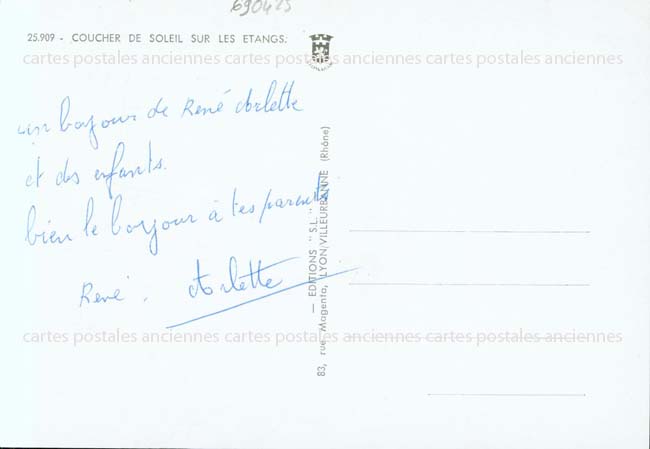 690425
25.909 - COUCHER DE SOLEIL SUR LES ETANGS.
cartes postales anciennes cartes postales anciennes cartes postales anciennes
un bonjour de René Arlette
et des enfants.
bien le bonjour à tes parents
René. Arlette
— EDITIONS "S.L." —
83, rue Magenta, LYON/VILLEURBANNE (Rhône)
cartes postales anciennes cartes postales anciennes cartes postales anciennes